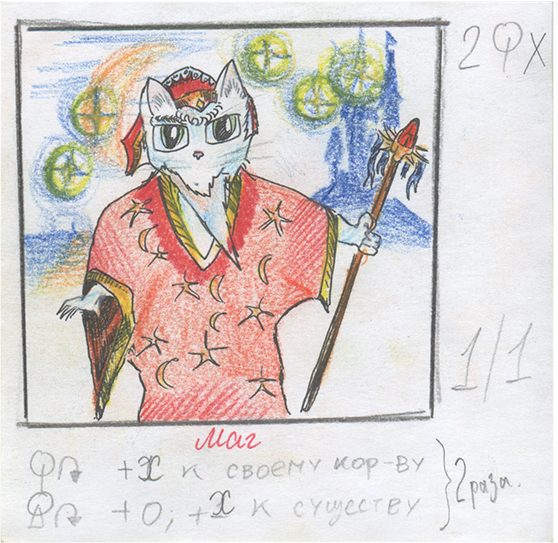 2 X
1/1
Маг
+x к своему кор-ву
+0; +x к существу
2 раза.